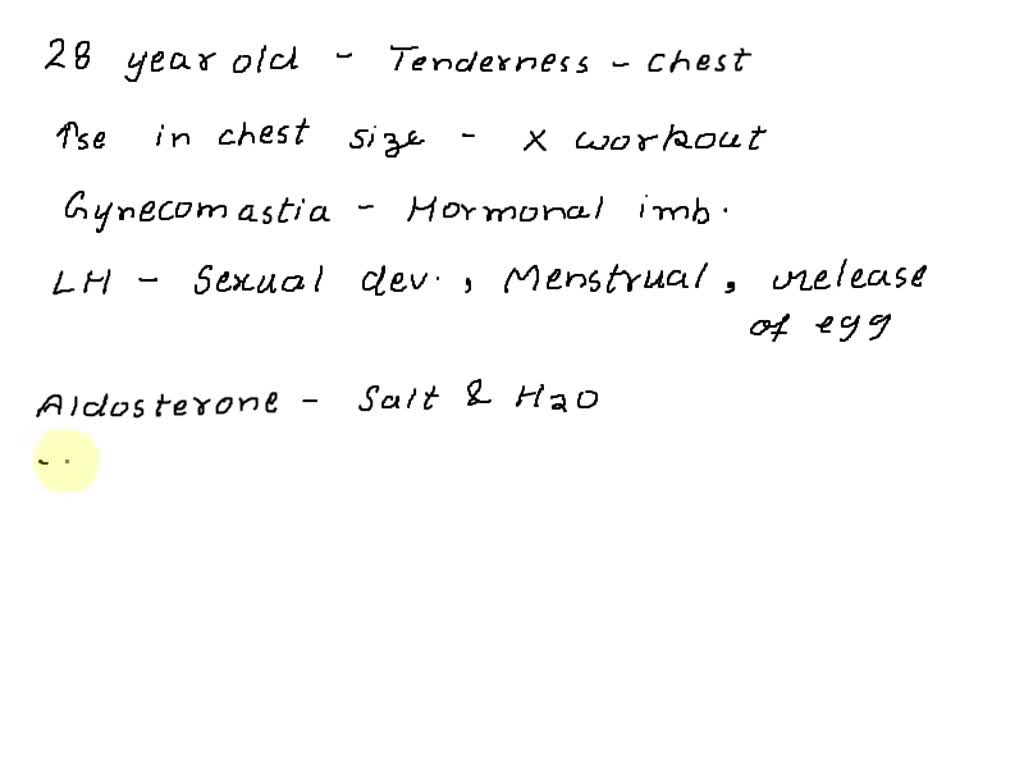 28 year old - Tenderness - chest
↑se in chest size - x workout
Gynecomastia - Hormonal imb.
LH - Sexual dev. , Menstrual , release
of egg
Aldosterone - Salt & H2O